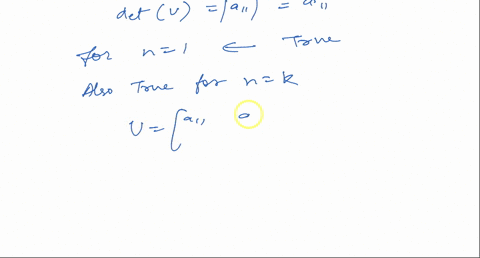 det (U) = |a11| = a11
for n=1 ← True
Also True for n=k
U = [a11 a